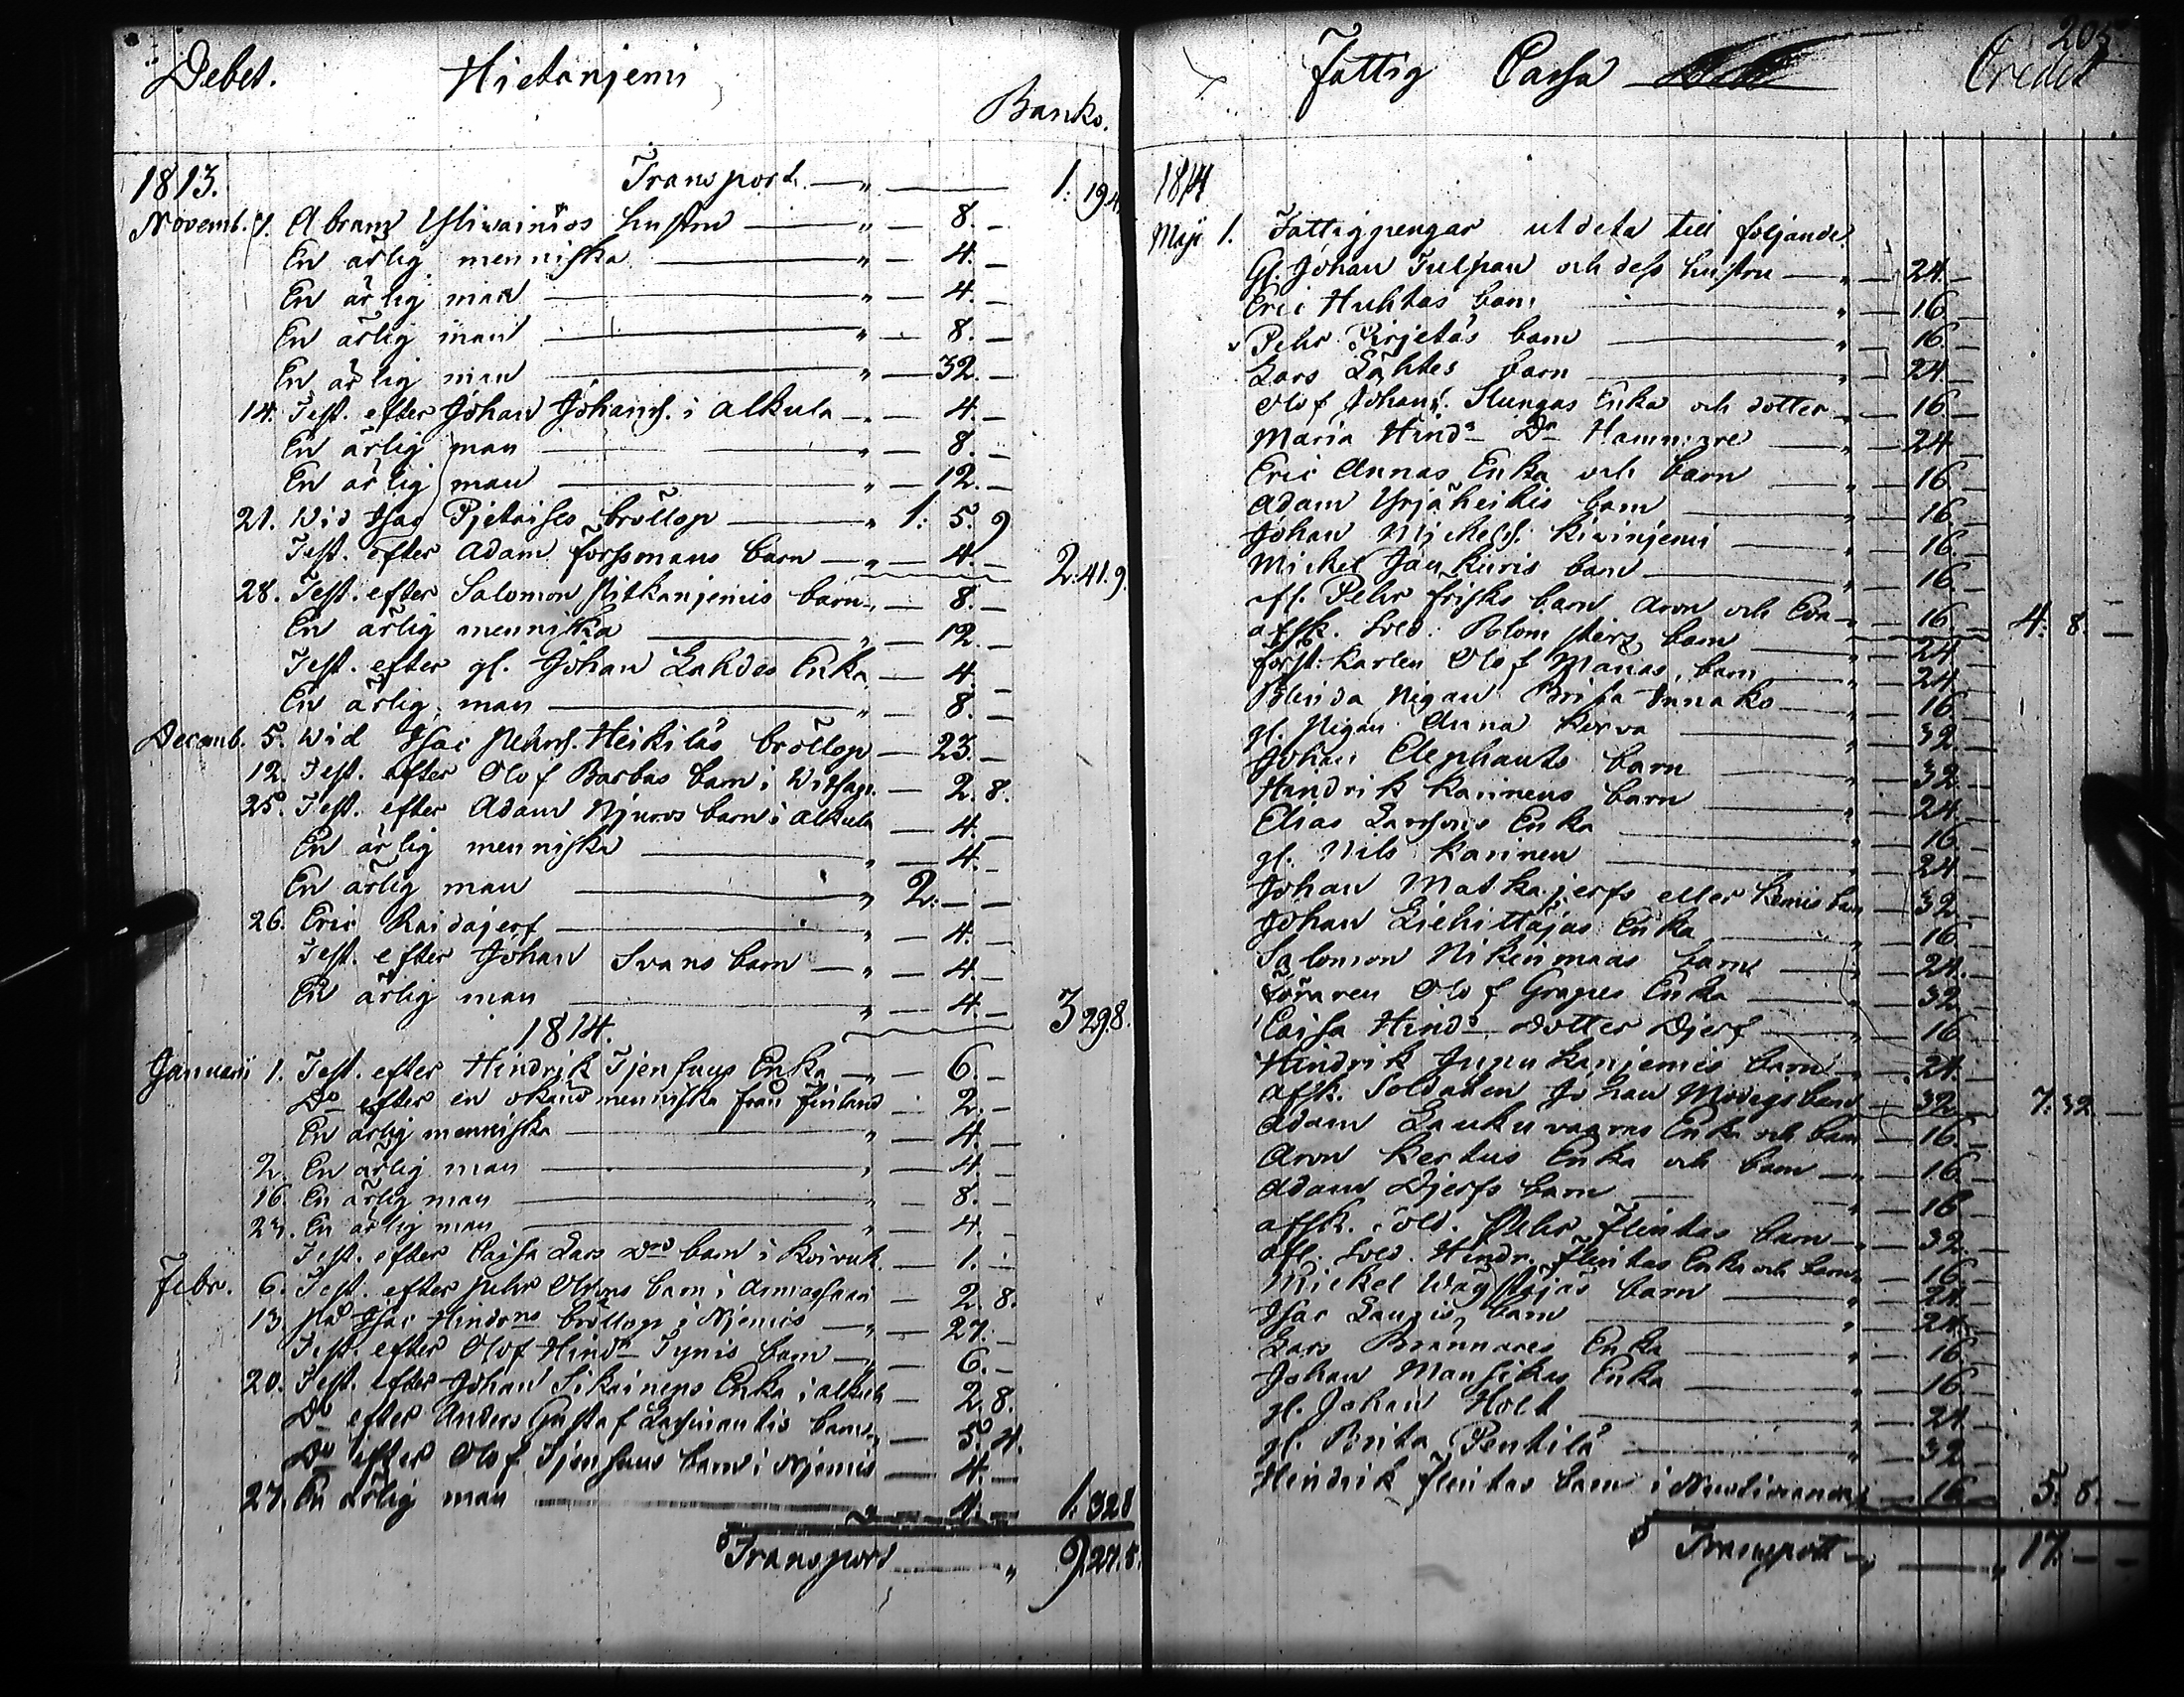 Debet. Hietaniemi
Banko.
1813. Transport. — " — 1: 19.4.
Novemb. 7. Abram Yliwainios hustru — " — 8. —
En ärlig menniska — " — 4. —
En ärlig man — " — 4. —
En ärlig man — " — 8. —
En ärlig man — " — 32. —
14. Test. efter Johan Johans. i Alkula — " — 4. —
En ärlig man — " — 8. —
En ärlig man — " — 12. —
21. Wid Isac Pjetaises bröllop — " 1: 5. 9
Test. efter Adam Forssmans barn — " — 4. — 2:41.9.
28. Test. efter Salomon Pitkaniemis barn " — 8. —
En ärlig menniska — " — 12 —
Test. efter gl. Johan Lahdes Enka — 4 —
En ärlig man — " — 8. —
Decemb. 5. Wid Isac Pehrs. Heikiläs bröllop — 23. —
12. Test. efter Olof Barbas barn i — 2. 8.
25. Test. efter Adam barn i Alkula — 4. —
En ärlig menniska — " — 4. —
En ärlig man — " 2. — —
26. Eric Raidajerf — " — 4. —
Test. efter Johan Svans barn — " — 4. —
En ärlig man — " — 4. — 3 29.8.
1814.
Januarii 1. Test. efter Hindrik Enka — " — 6. —
Do efter en okänd menniska från Finland — 2. —
En ärlig menniska — " — 4. —
2. En ärlig man — " — 4. —
16. En ärlig man — " — 8. —
23. En ärlig man — " — 4. —
Test. efter Cajsa Lars Drs barn i Koivuk. — 1. —
Febr. 6. Test. efter Pehr barn i — 2. 8.
13. På Isac Hindrs bröllop i Njemis — " — 27. —
Test. efter Olof Hindr. Tynis barn — " — 6. —
20. Test. efter Johan Sikainens Enka i Alkula — 2. 8.
Do efter Anders Gustaf barn " — 5. 4.
Do efter Olof barn i Njemis — 4. —
27. En ärlig man — " — 4. — 1. 32 8
Transport — " 9.27.8.
205
Fattig Cassa Credit
1814
Maji 1. Fattigpengar utdeta till följande
Gl. Johan Tulpan och dess hustru — " — 24. —
Eric Huhtas barn — " — 16 —
Pehr Pirjetäs barn — " — 16. —
Lars Lahtes barn — " — 24 —
Olof Johans. Slungas Enka och dotter " — 16. —
Maria Hindrs Dr Hammare — " — 24 —
Eric Annas Enka och barn — " — 16. —
Adam Yrjäheikis barn — " — 16. —
Johan Mickels. Kiviniemi — " — 16 —
Mickel Jankuris barn — " — 16. —
afl. Pehr Frisks barn Aron och Eva " — 16. — 4. 8. —
afsk. Sold. Blomsters barn — " — 24 —
forst. Karlen Olof Manas barn — " — 24 —
Blinda Pigan Brita Innako — " — 16 —
gl. Pigan Anna Kerva — " — 32 —
Johan Elephants barn — " — 32 —
Hindrik Karinens barn — " — 24 —
Elias Larssons Enka — " — 16 —
gl. Nils Karinen — " — 24 —
Johan Matkajerfs eller Kemis barn — 32. —
Johan Liehittäjas Enka — " — 16 —
Salomon Nikenmaas barn — " — 24. —
Olof Grapes Enka — " — 32. —
Cajsa Hindrs dotter Djerf — " — 16 —
Hindrik Junukaniemis barn " — 24. —
afsk. Soldaten Johan Modigs barn — 32 — 7:32 —
Adam Enka och barn — 16 —
Aron Kertus Enka och barn — " — 16 —
Adam Djerfs barn — " — 16 —
afsk. Sold. Pehr Flinkas barn — " — 32. —
afl. Sold. Hindr. Flinkas Enka och barn — 16 —
Mickel barn — " — 24 —
Isac barn — " — 24 —
Lars Brännares Enka — " — 16 —
Johan Mansikas Enka — " — 16 —
gl. Johan Holt — " — 24 —
gl. Brita Pentilä — " — 32 —
Hindrik Flinkas barn i — 16 — 5. 8. —
Transport — " — " 17. — —